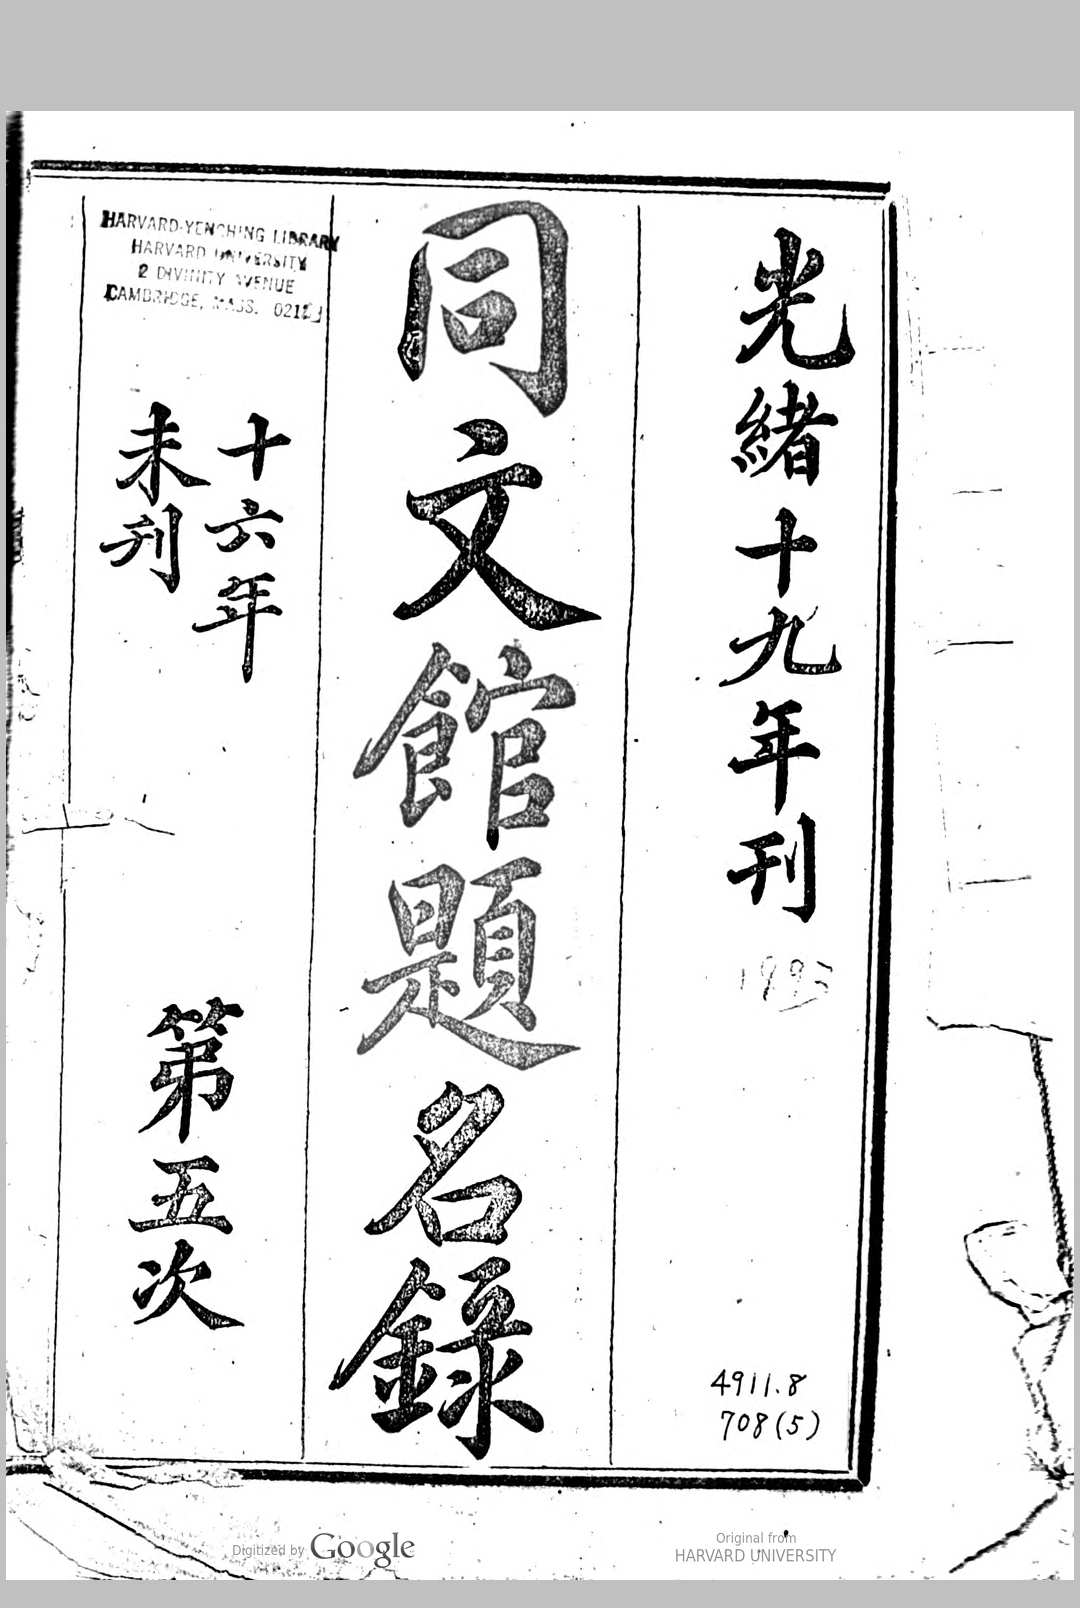 光緒十九年刊
1893
4911.8
708(5)
同文館題名錄
十六年
未刊
第五次
HARVARD-YENCHING LIBRARY
HARVARD UNIVERSITY
2 DIVINITY AVENUE
CAMBRIDGE, MASS. 02138
Digitized by Google
Original from
HARVARD UNIVERSITY